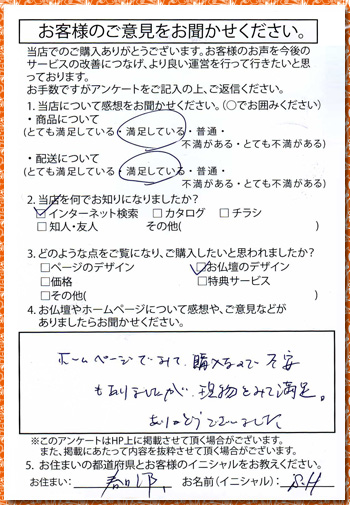 お客様のご意見をお聞かせください。
当店でのご購入ありがとうございます。お客様のお声を今後の
サービスの改善につなげ、より良い運営を行って行きたいと思
っております。
お手数ですがアンケートをご記入の上、ご返信ください。
1.当店について感想をお聞かせください。(○でお囲みください)
・商品について
(とても満足している・満足している・普通・
不満がある・とても不満がある)
・配送について
(とても満足している・満足している・普通・
不満がある・とても不満がある)
2.当店を何でお知りになりましたか?
☑インターネット検索 □カタログ □チラシ
□知人・友人 その他( )
3.どのような点をご覧になり、ご購入したいと思われましたか?
□ページのデザイン ☑お仏壇のデザイン
□価格 □特典サービス
□その他( )
4.お仏壇やホームページについて感想や、ご意見などが
ありましたらお聞かせください。
ホームページでみて、購入なので不安
もありましたが、現物をみて満足。
ありがとうございました
※このアンケートはHP上に掲載させて頂く場合がございます。
また、掲載にあたって内容を抜粋させて頂く場合がございます。
5.お住まいの都道府県とお客様のイニシャルをお教えください。
お住まい: 春日部、 お名前(イニシャル): S.H